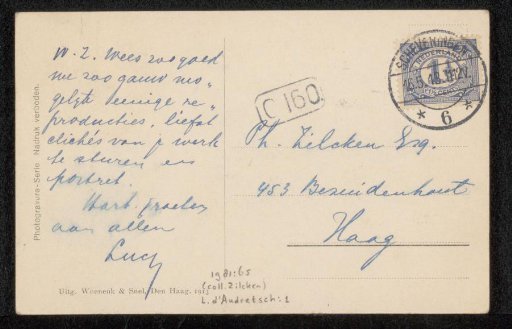 W. Z. Wees zoo goed
me zoo gauw mo„
gelijk eenige re„
producties, liefst
clichés van je werk
te sturen en
portret.
Hart. groeten
aan allen
Lucy
Photogravure-Serie. Nadruk verboden.
Uitg. Weenenk & Snel, Den Haag. 1913
C 160
SCHEVENINGEN
* 6 *
NEDERLAND
Ph. Zilcken Esq.
453 Bezuidenhout
Haag
1981:65
(coll. Zilcken)
L. d'Audretsch:1